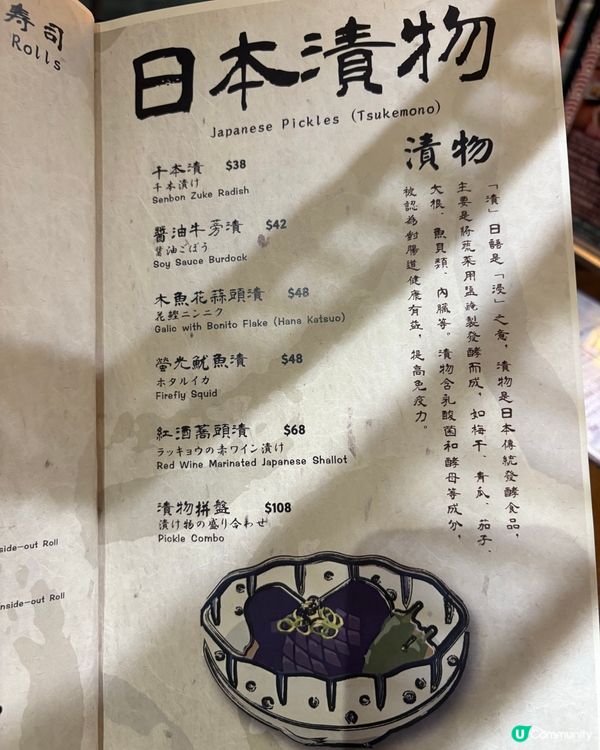 寿司
Rolls
日本漬物
Japanese Pickles (Tsukemono)
千本漬 $38
千本漬け
Senbon Zuke Radish
醬油牛蒡漬 $42
醤油ごぼう
Soy Sauce Burdock
木魚花蒜頭漬 $48
花鰹ニンニク
Galic with Bonito Flake (Hana Katsuo)
螢光魷魚漬 $48
ホタルイカ
Firefly Squid
紅酒蕎頭漬 $68
ラッキョウの赤ワイン漬け
Red Wine Marinated Japanese Shallot
漬物拼盤 $108
漬け物の盛り合わせ
Pickle Combo
漬物
「漬」日語是「浸」之意，漬物是日本傳統發酵食品，
主要是將蔬菜用鹽醃製發酵而成，如梅干、青瓜、茄子、
大根、魚貝類、內臟等。漬物含乳酸菌和酵母等成分，
被認為對腸道健康有益，提高免疫力。
side-out Roll
nside-out Roll
U Community